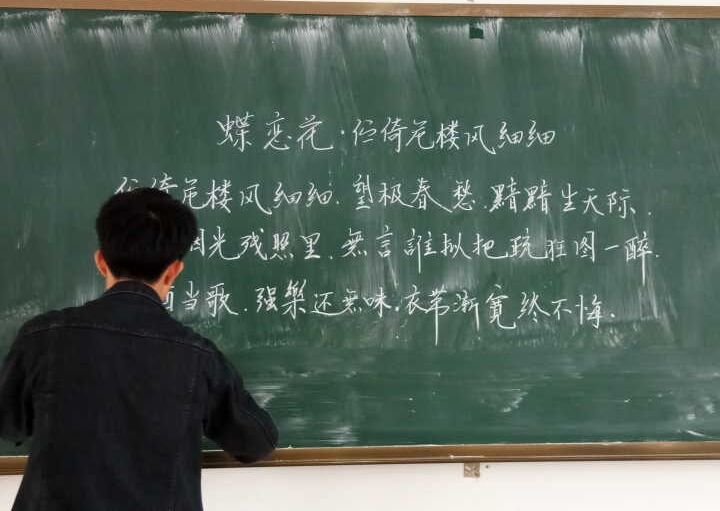 蝶恋花·伫倚危楼风细细
伫倚危楼风细细.望极春愁.黯黯生天际.
光残照里.無言誰拟把疏狂图一醉.
当歌.强樂还無味.衣带渐寬终不悔.